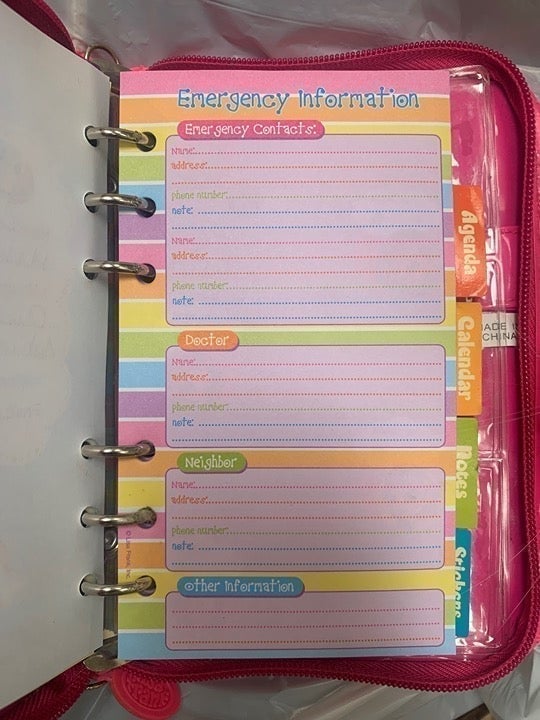 Emergency Information
Emergency Contacts:
Name:
address:
phone number:
note:
Name:
address:
phone number:
note:
Doctor
Name:
address:
phone number:
note:
Neighbor
Name:
address:
phone number:
note:
Other Information
Agenda
Calendar
Notes
Stickers
MADE IN
CHINA